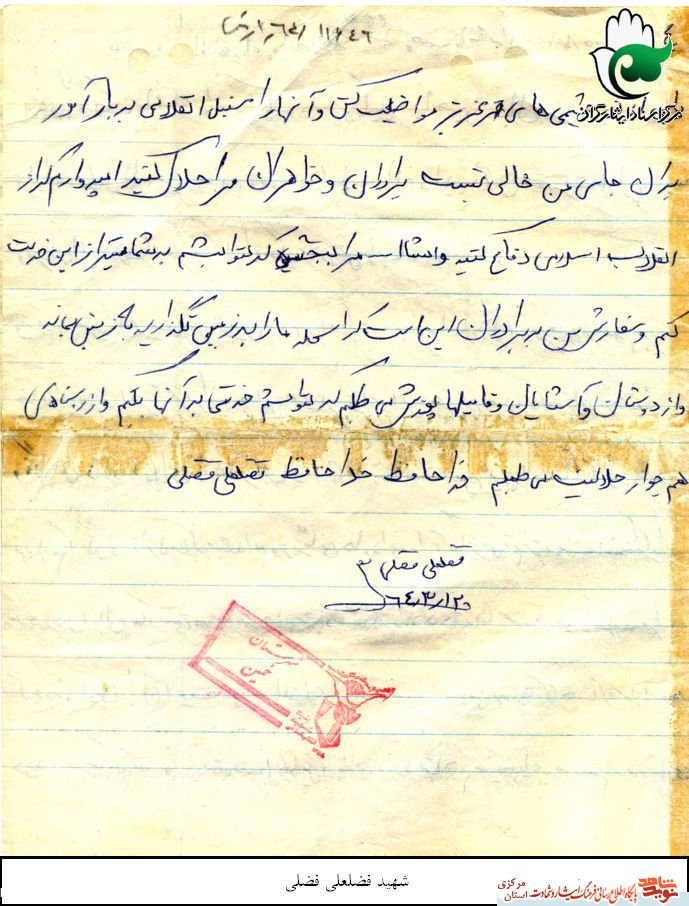 مرکز اسناد ایثارگران
عزیز مواظبت کن و آنها را نسل انقلابی به بار آور
جای من خالی نیست برادران و خواهران مرا حلال کنید امیدوارم که از
انقلاب اسلامی دفاع کنید و انشاالله مرا ببخشید که نتوانستم به شما بیشتر از این خدمت
کنم و سفارش من به برادران این است که اسلحه ما را به زمین نگذارید
و از دوستان و آشنایان و فامیلها پوزش می طلبم که نتوانستم خدمتی به آنها بکنم و از
هم جوار حلالیت می طلبم خدا حافظ خدا حافظ فضلعلی فضلی
فضلعلی فضلی
شهرستان
خمین
شهید فضلعلی فضلی
نوید شاهد
پایگاه اطلاع رسانی فرهنگ ایثار و شهادت
استان مرکزی